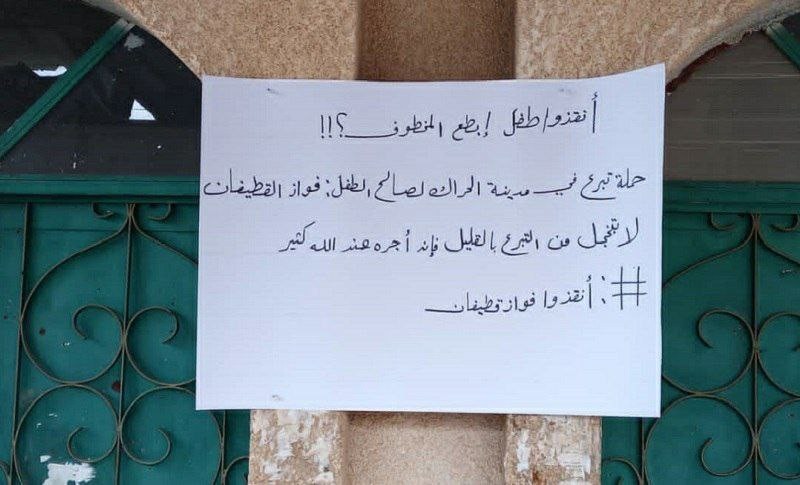 أنقذوا طفل إبطع المخطوف؟!!!
حملة تبرع في مدينة الحراك لصالح الطفل: فواز القطيفان
لا تخجل من التبرع بالقليل فإنه أجره عند الله كثير
#: أنقذوا فواز قطيفان